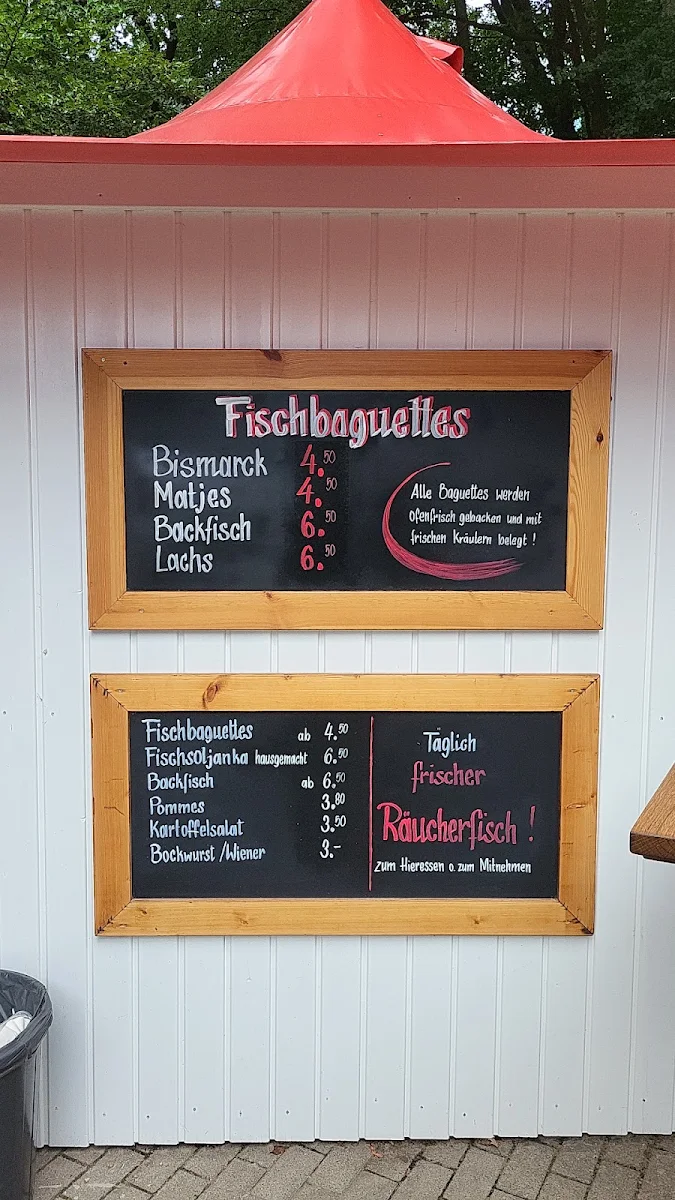 Fischbaguettes
Bismarck 4.50
Matjes 4.50
Backfisch 6.50
Lachs 6.50
Alle Baguettes werden
ofenfrisch gebacken und mit
frischen Kräutern belegt !
Fischbaguettes ab 4.50
Fischsoljanka hausgemacht 6.50
Backfisch ab 6.50
Pommes 3.80
Kartoffelsalat 3.50
Bockwurst /Wiener 3.-
Täglich
frischer
Räucherfisch !
zum Hieressen o. zum Mitnehmen